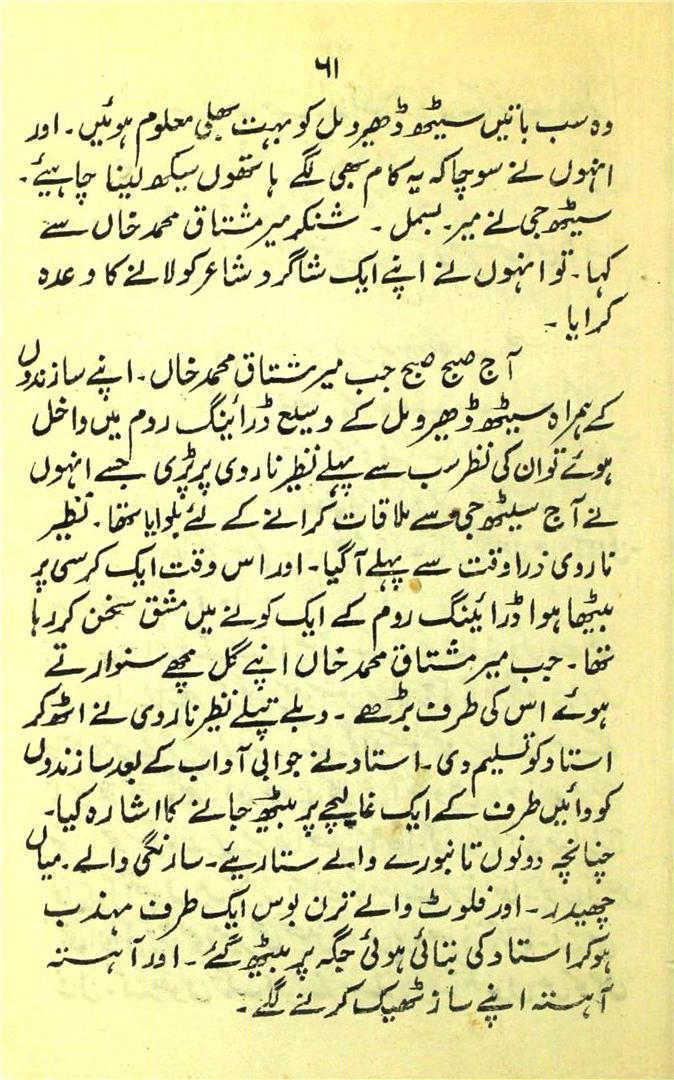 ۶۱
وہ سب باتیں سیٹھ ڈھیرومل کو بہت بھلی معلوم ہوئیں۔ اور
انہوں نے سوچا کہ یہ کام بھی لگے ہاتھوں سیکھ لینا چاہیئے۔
سیٹھ جی نے میر بسمل۔ شنکر میر مشتاق محمد خاں سے
کہا۔ تو انہوں نے اپنے ایک شاگرد شاعر کو لانے کا وعدہ
کرایا۔
آج صبح صبح جب میر مشتاق محمد خاں۔ اپنے سازندوں
کے ہمراہ سیٹھ ڈھیرومل کے وسیع ڈرائینگ روم میں داخل
ہوئے تو ان کی نظر سب سے پہلے نظیر ناروی پر پڑی جسے انہوں
نے آج سیٹھ جی سے ملاقات کرانے کے لئے بلوایا تھا۔ نظیر
ناروی ذرا وقت سے پہلے آ گیا۔ اور اس وقت ایک کرسی پر
بیٹھا ہوا ڈرائینگ روم کے ایک کونے میں مشق سخن کر رہا
تھا۔ جب میر مشتاق محمد خاں اپنے گل مچھے سنوارتے
ہوئے اس کی طرف بڑھے۔ دبلے پتلے نظیر ناروی نے اٹھ کر
استاد کو تسلیم دی۔ استاد نے جوابی آداب کے بعد سازندوں
کو دائیں طرف کے ایک غالیچے پر بیٹھ جانے کا اشارہ کیا۔
چنانچہ دونوں تانبورے والے ستاریئے۔ سارنگی والے۔ میاں
چھیدر۔ اور فلوٹ والے ترن بوس ایک طرف مہذب
ہو کر استاد کی بتائی ہوئی جگہ پر بیٹھ گئے۔ اور آہستہ
آہستہ اپنے ساز ٹھیک کرنے لگے۔